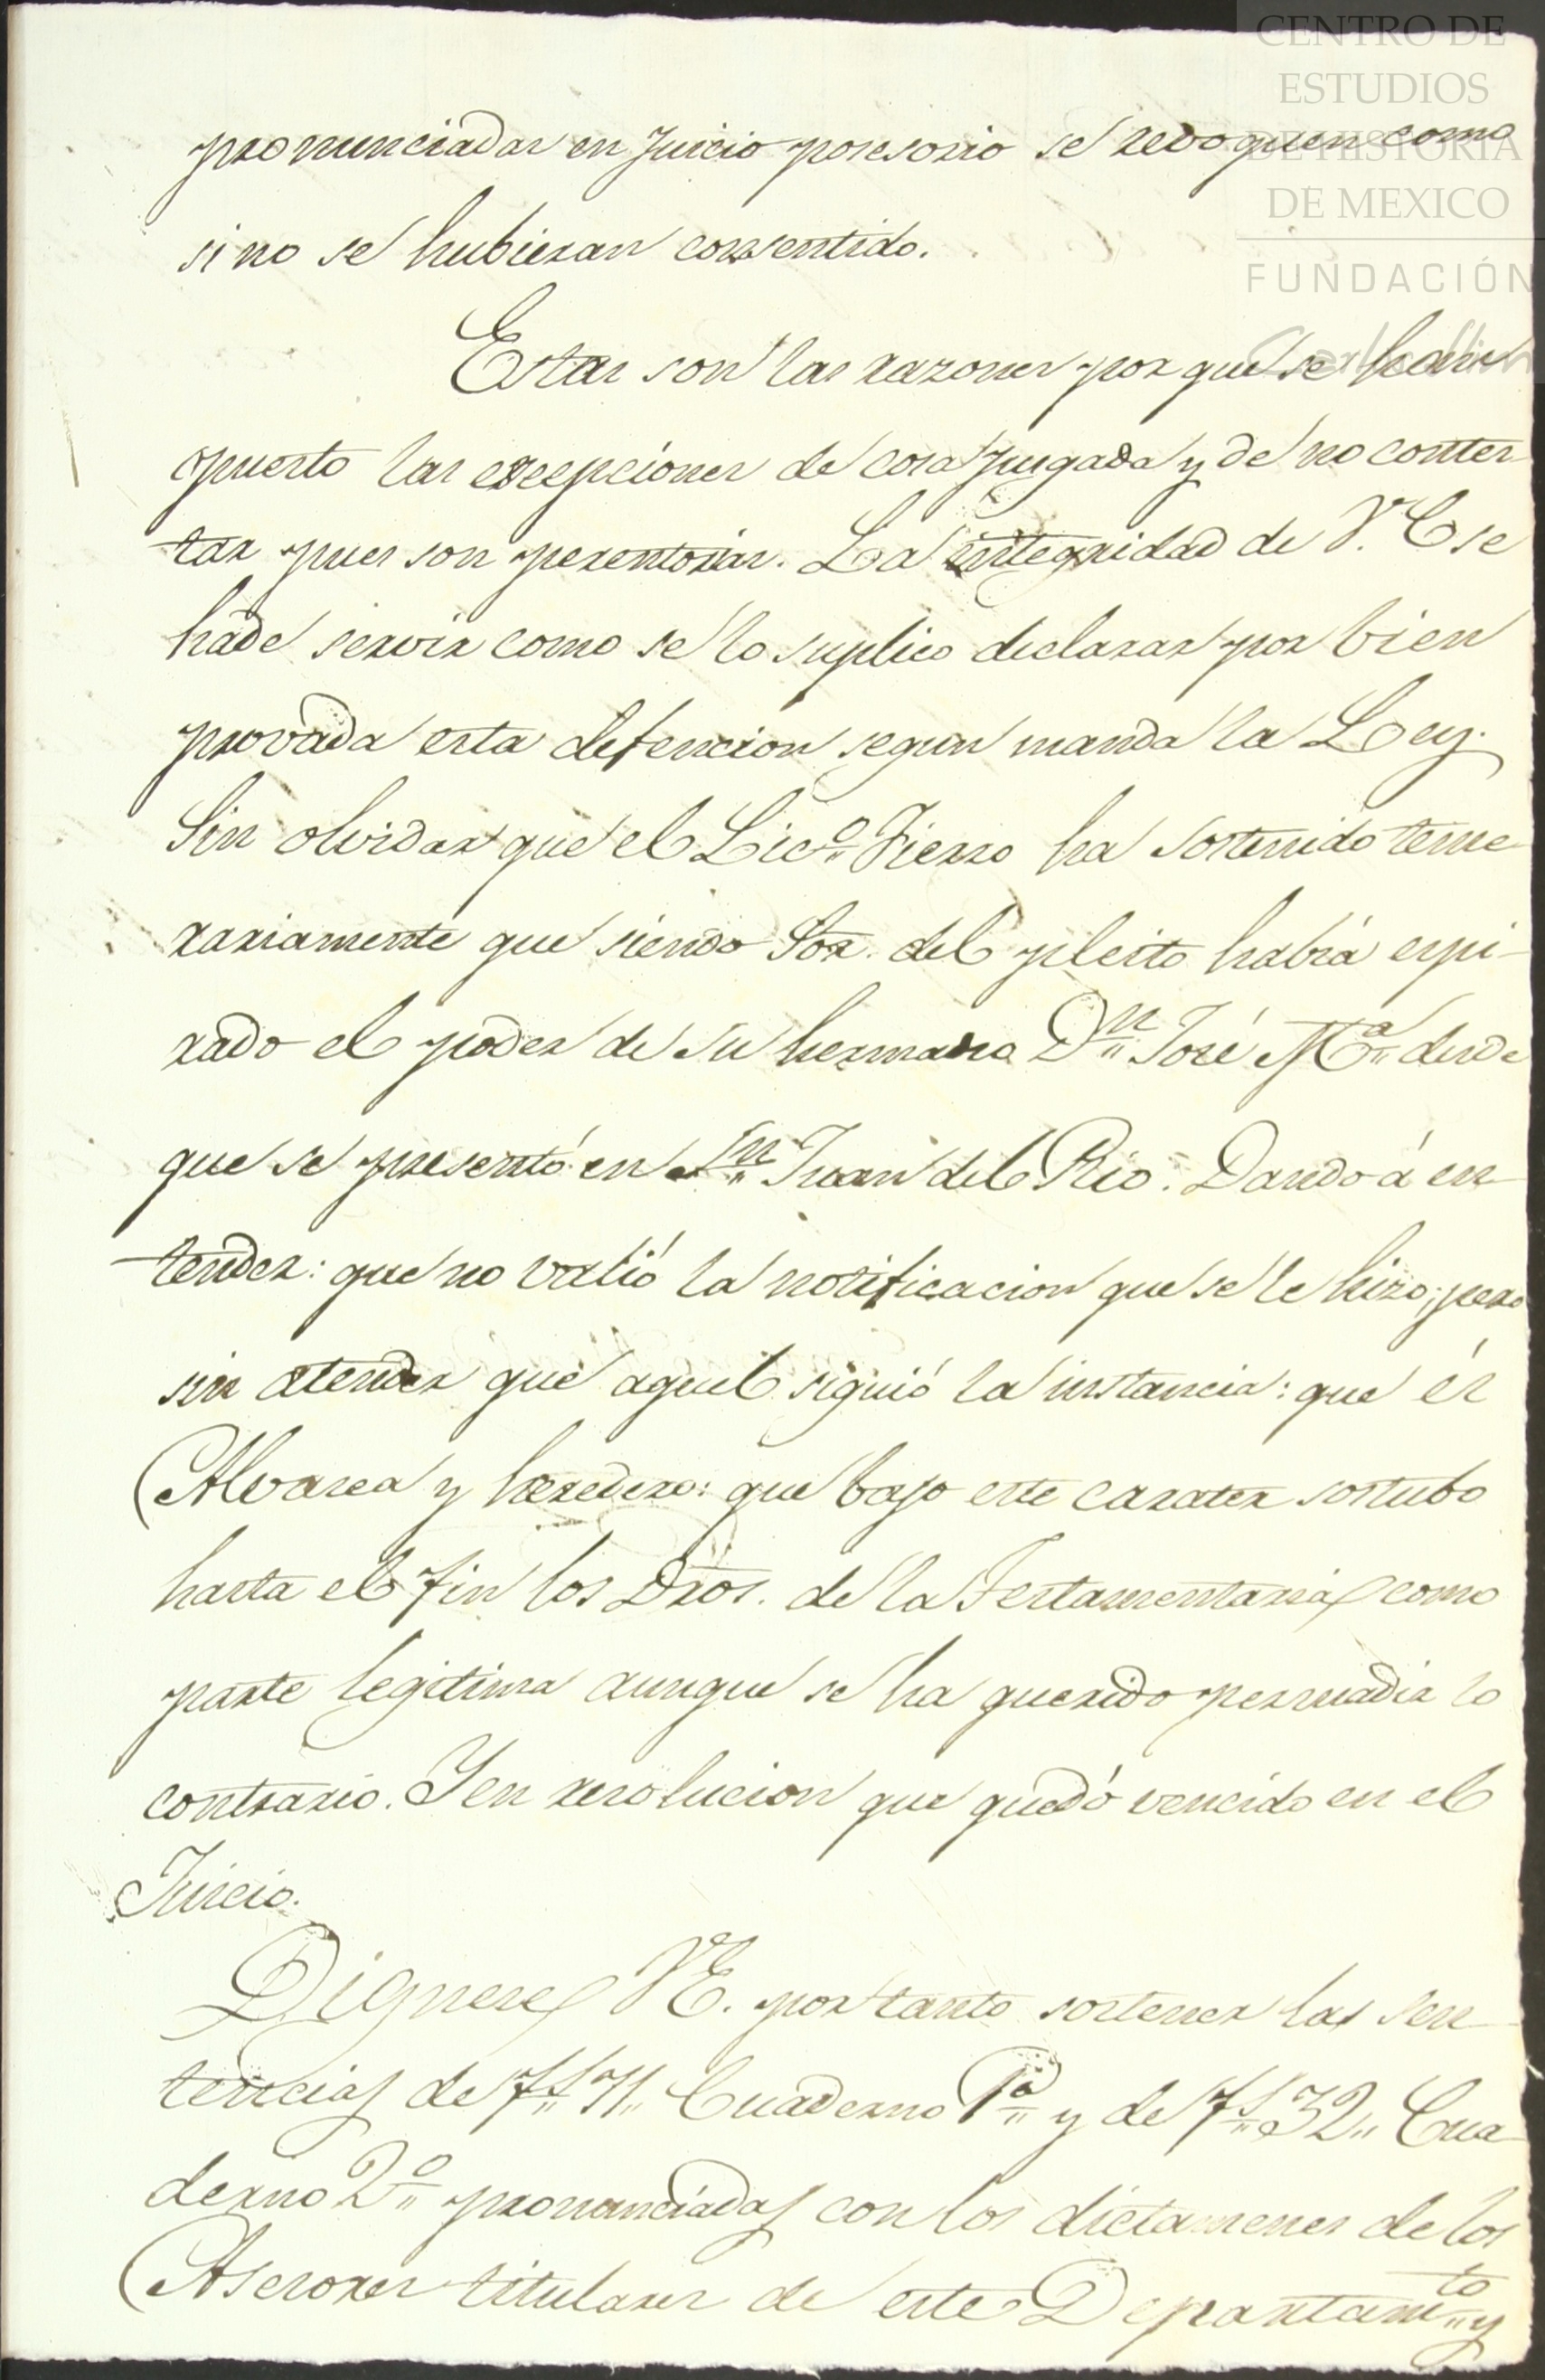 CENTRO DE
ESTUDIOS
DE HISTORIA
DE MEXICO
FUNDACIÓN
pronunciadas en Juicio posesorio se revoquen como
si no se hubieran consentido.
Estas son las razones por que se han
opuesto las excepciones de cosa juzgada y de no contes
tar pues son perentorias. La integridad de V. E se
hade servir como se lo suplico declarar por bien
provada esta defencion segun manda la Ley.
Sin olvidar que el Lic.º Fierro ha sostenido teme
rariamente que siendo Sor. del pleito habia espi-
rado el poder de su hermano Dn José Ma desde
que se presentó en Sn Juan del Rio. Dando á en
tender: que no valió la notificacion que se le hizo; pero
sin atender que aquel siguió la instancia: que es
Albacea y heredero: que bajo este carater sostubo
hasta el fin los Dros. de la Testamentaria, como
parte legitima aunque se ha querido persuadir lo
contrario. Y en resolucion que quedó vencido en el
Juicio.
Dignese VE. por tanto sostener las sen
tencias de fs 71 Cuaderno 1º y de fs 32 Cua
derno 2º pronunciadas con los dictamenes de los
Asesores titulares de este Departamto y